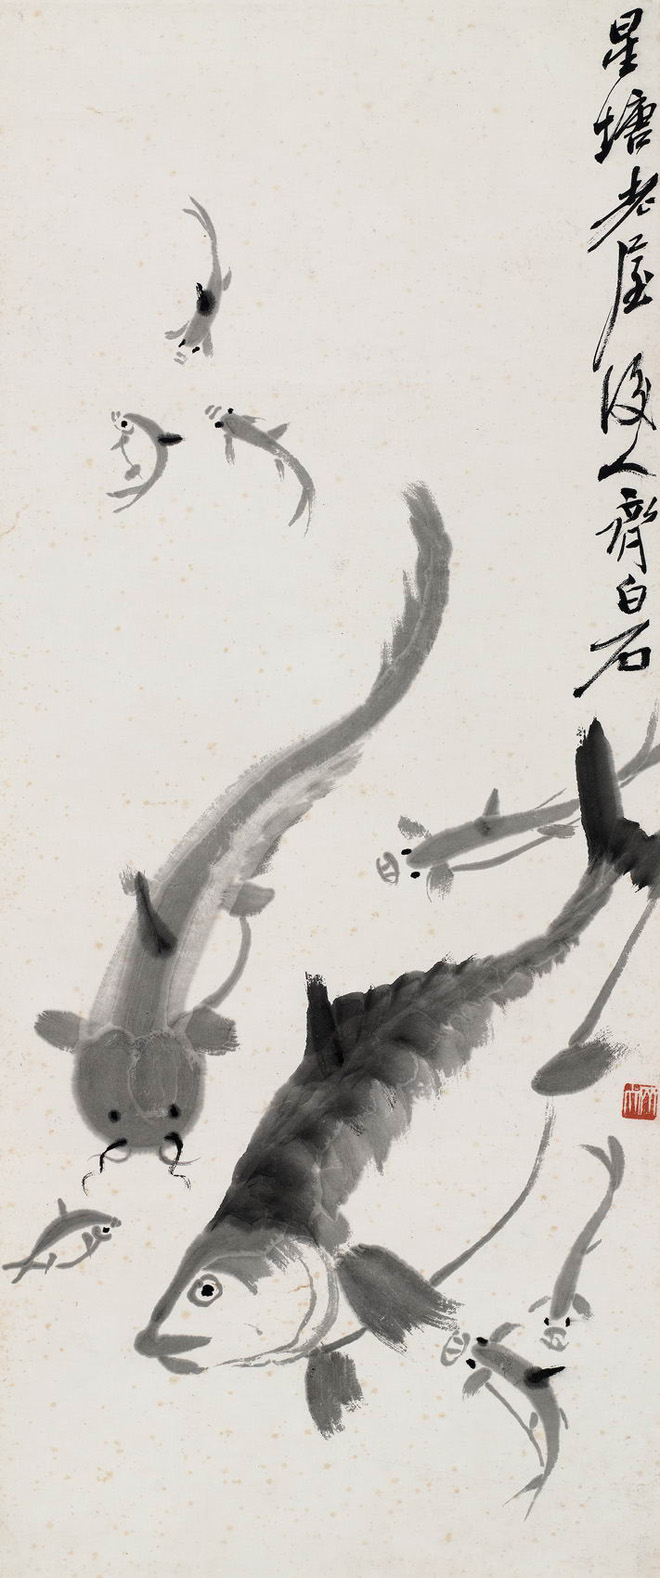 星塘老屋後人齊白石